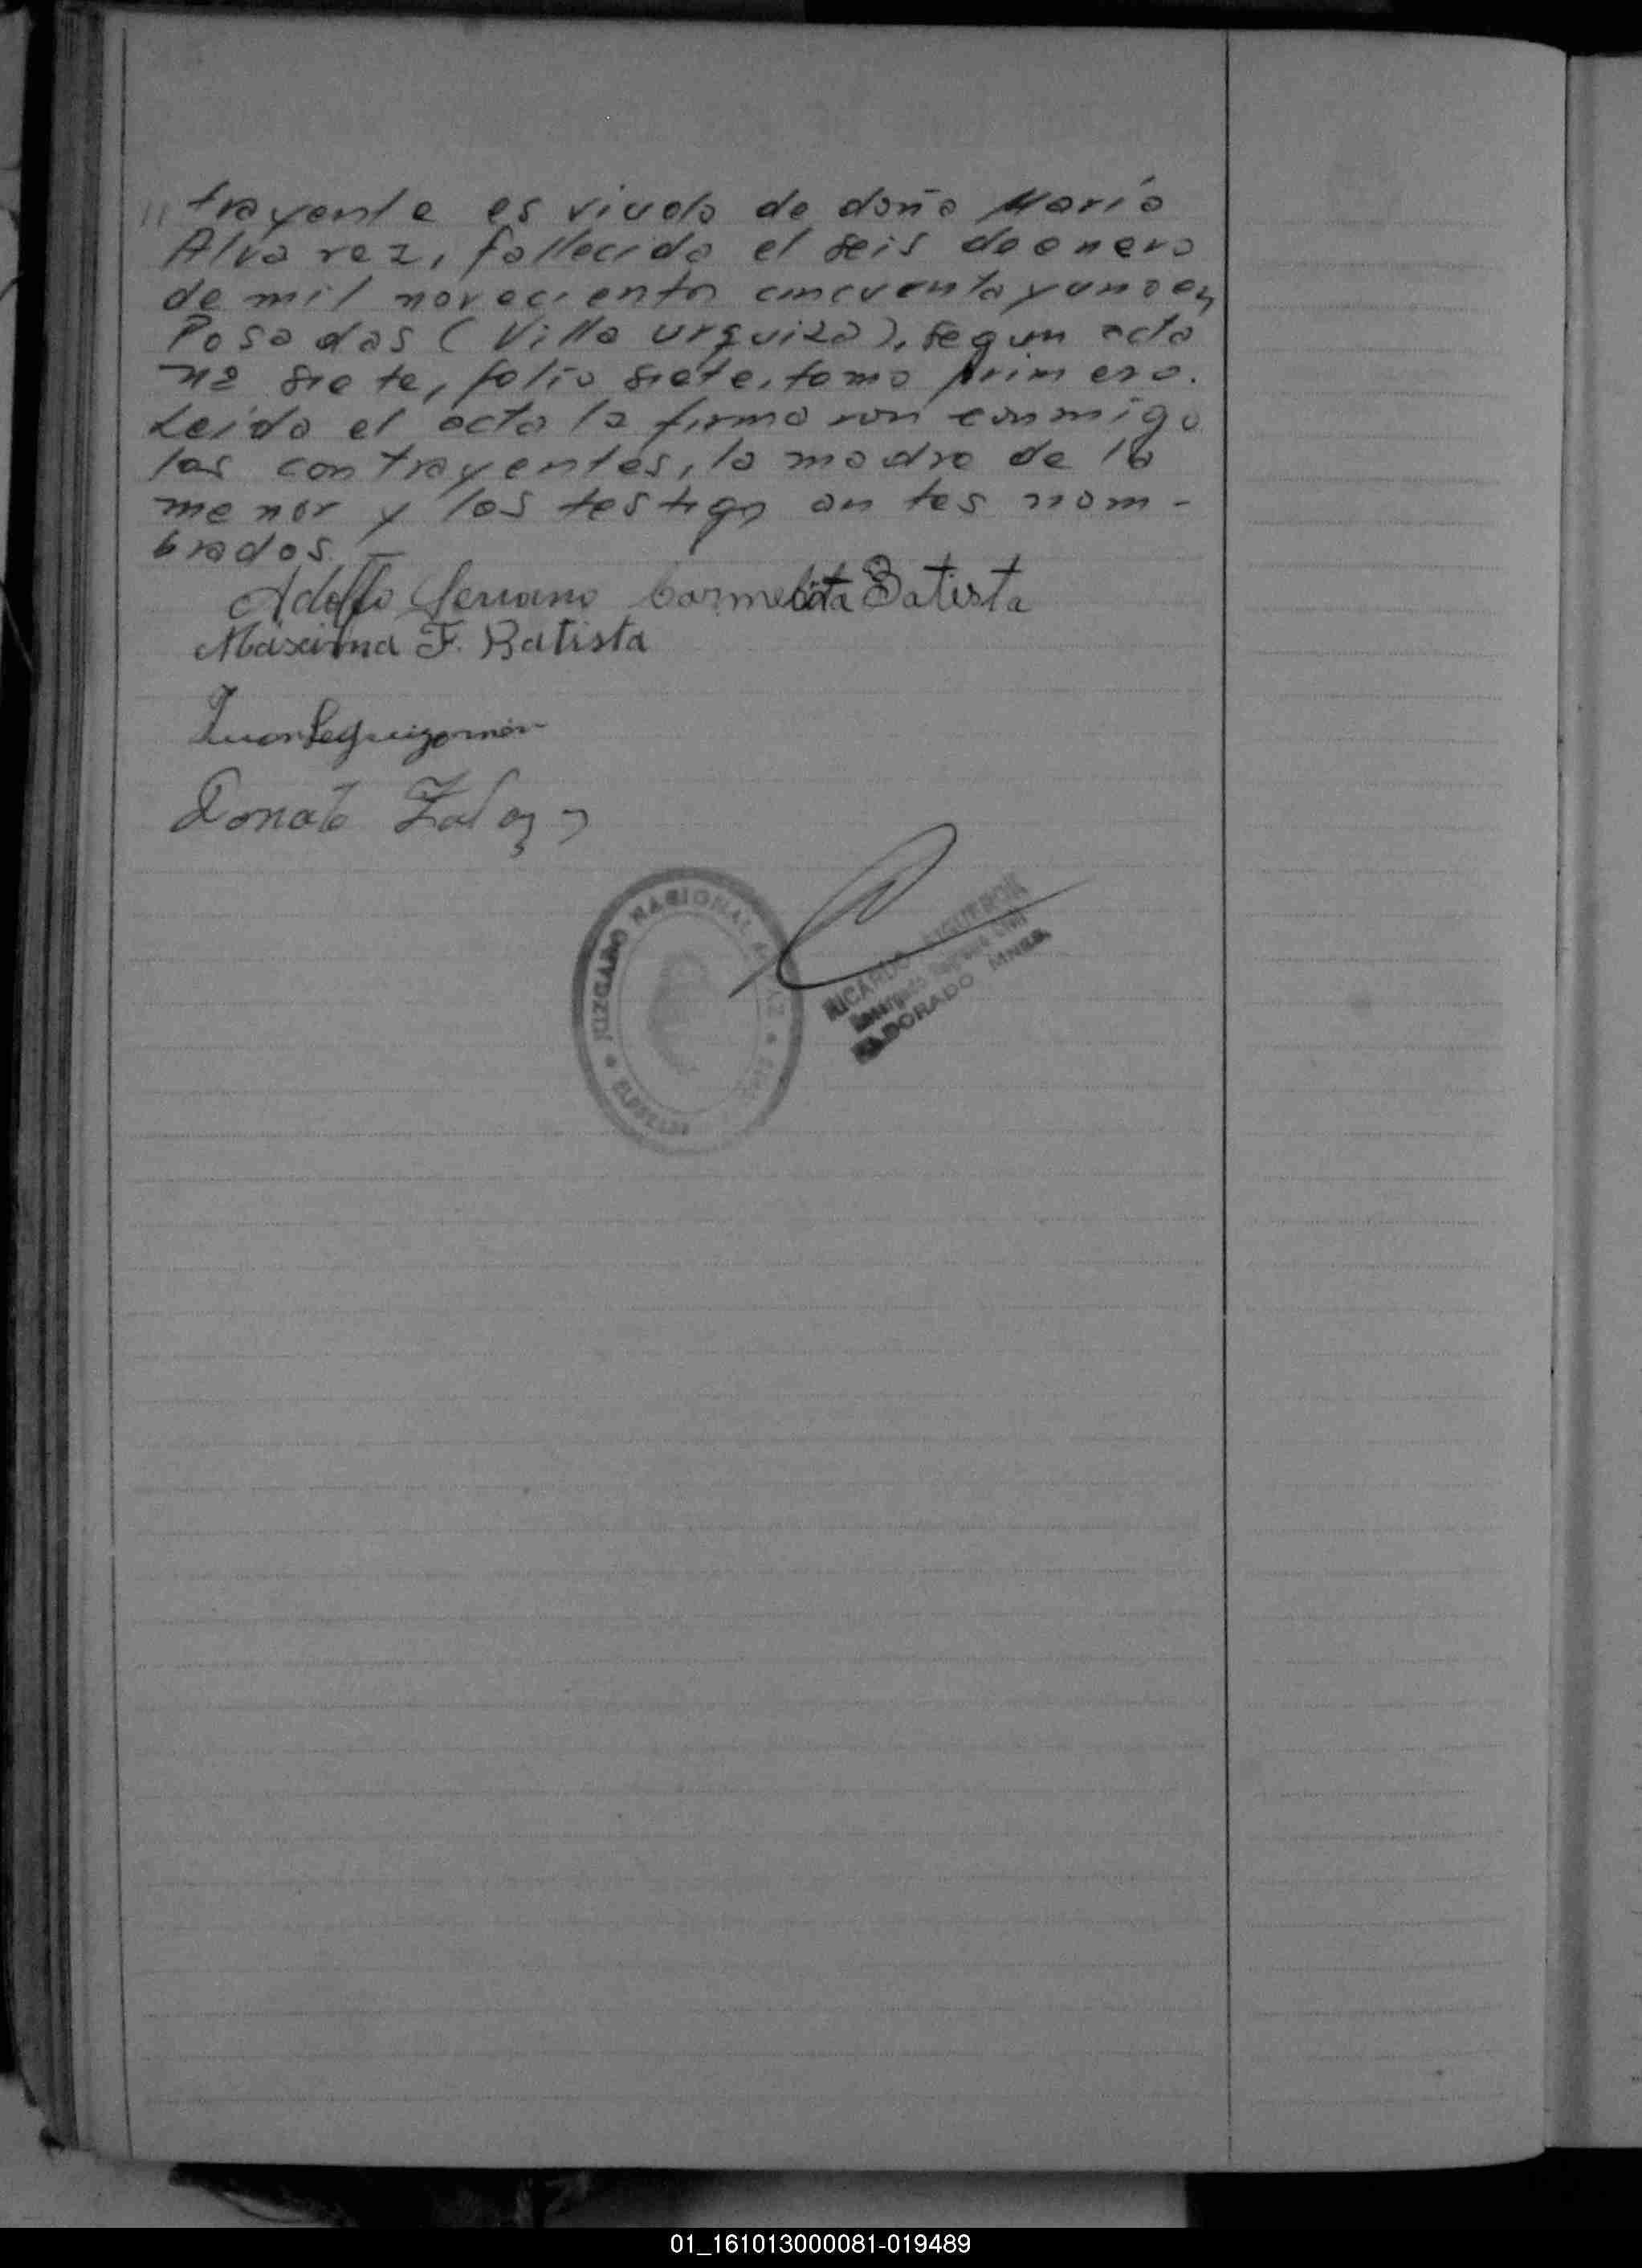 // trayente es viudo de doña María
Alvarez, fallecida el seis de enero
de mil novecientos cincuenta y uno en
Posadas (Villa Urquiza), segun acta
nº siete, folio siete, tomo primero.
Leída el acta la firmaron conmigo
los contrayentes, la madre de la
menor y los testigos antes nom-
brados.
Adolfo Serrano Carmelita Batista
Máxima F. Batista
Juan Leguizamón
Donato
JUZGADO NACIONAL DE PAZ
RICARDO FIGUERON
Encargado Registro Civil
ELDORADO MNES.
01_161013000081-019489